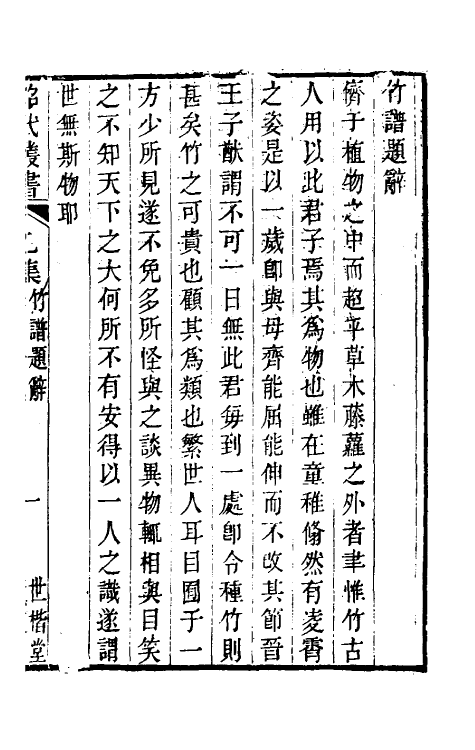 竹譜題辭
儕于植物之中而超乎草木藤蘿之外者聿惟竹古
人用以此君子焉其為物也雖在童稚翛然有凌霄
之姿是以一歲卽與母齊能屈能伸而不改其節晉
王子猷謂不可一日無此君每到一處卽令種竹則
甚矣竹之可貴也顧其為類也繁世人耳目囿于一
方少所見遂不免多所怪與之談異物輒相與目笑
之不知天下之大何所不有安得以一人之識遂謂
世無斯物耶
昭代叢書 乙集 竹譜題辭 一 世楷堂